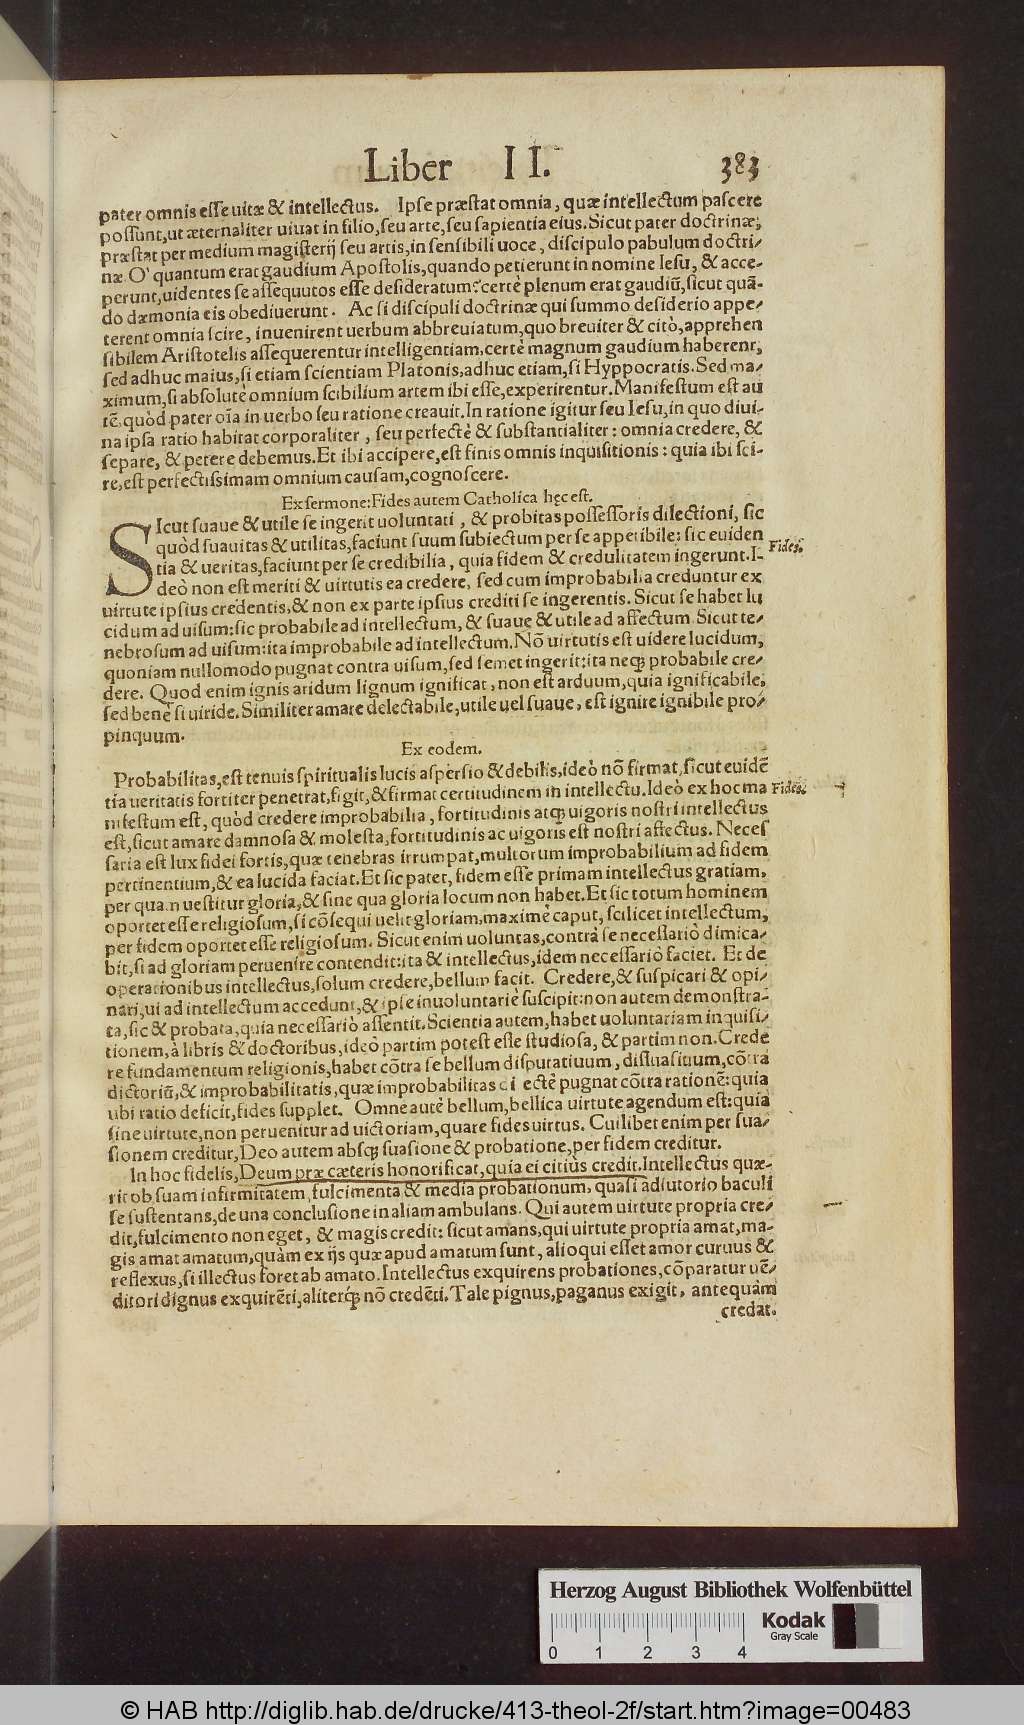 Liber II. 383
pater omnis esse uitæ & intellectus. Ipse præstat omnia, quæ intellectum pascere
possunt, ut æternaliter uiuat in filio, seu arte, seu sapientia eius. Sicut pater doctrinæ,
præstat per medium magisterij seu artis, in sensibili uoce, discipulo pabulum doctri-
næ. O' quantum erat gaudium Apostolis, quando petierunt in nomine Iesu, & acce-
perunt, uidentes se assequutos esse desideratum? certè plenum erat gaudiũ, sicut quã-
do dæmonia eis obediuerunt. Ac si discipuli doctrinæ qui summo desiderio appe-
terent omnia scire, inuenirent uerbum abbreuiatum, quo breuiter & citò, apprehen
sibilem Aristotelis assequerentur intelligentiam, certè magnum gaudium haberent,
sed adhuc maius, si etiam scientiam Platonis, adhuc etiam, si Hyppocratis. Sed ma-
ximum, si absolutè omnium scibilium artem ibi esse, experirentur. Manifestum est au
tẽ, quòd pater oĩa in uerbo seu ratione creauit. In ratione igitur seu Iesu, in quo diui-
na ipsa ratio habitat corporaliter, seu perfectè & substantialiter: omnia credere, &
separe, & petere debemus. Et ibi accipere, est finis omnis inquisitionis: quia ibi sci-
re, est perfectissimam omnium causam, cognoscere.
Ex sermone: Fides autem Catholica hęc est.
SIcut suaue & utile se ingerit uoluntati, & probitas possessoris dilectioni, sic
quòd suauitas & utilitas, faciunt suum subiectum per se appetibile: sic euiden
tia & ueritas, faciunt per se credibilia, quia fidem & credulitatem ingerunt. I-
deò non est meriti & uirtutis ea credere, sed cum improbabilia creduntur ex
Fides.
uirtute ipsius credentis, & non ex parte ipsius crediti se ingerentis. Sicut se habet lu
cidum ad uisum: sic probabile ad intellectum, & suaue & utile ad affectum. Sicut te-
nebrosum ad uisum: ita improbabile ad intellectum. Nõ uirtutis est uidere lucidum,
quoniam nullomodo pugnat contra uisum, sed semet ingerit: ita neq; probabile cre-
dere. Quod enim ignis aridum lignum ignificat, non est arduum, quia ignificabile,
sed benè si uiride. Similiter amare delectabile, utile uel suaue, est ignire ignibile pro-
pinquum.
Ex eodem.
Probabilitas, est tenuis spiritualis lucis aspersio & debilis, ideò nõ firmat, sicut euidẽ
tia ueritatis fortiter penetrat, figit, & firmat certitudinem in intellectu. Ideò ex hoc ma
Fides.
nifestum est, quòd credere improbabilia, fortitudinis atq; uigoris nostri intellectus
est, sicut amare damnosa & molesta, fortitudinis ac uigoris est nostri affectus. Neces
saria est lux fidei fortis, quæ tenebras irrumpat, multorum improbabilium ad fidem
pertinentium, & ea lucida faciat. Et sic patet, fidem esse primam intellectus gratiam,
per quam uestitur gloria, & sine qua gloria locum non habet. Et sic totum hominem
oportet esse religiosum, si cõsequi uelit gloriam, maximè caput, scilicet intellectum,
per fidem oportet esse religiosum. Sicut enim uoluntas, contrà se necessariò dimica-
bit, si ad gloriam peruenire contendit: ita & intellectus, idem necessariò faciet. Et de
operationibus intellectus, solum credere, bellum facit. Credere, & suspicari & opi-
nari, ui ad intellectum accedunt, & ipse inuoluntariè suscipit: non autem demonstra-
ta, sic & probata, quia necessariò assentit. Scientia autem, habet uoluntariam inquisi-
tionem, à libris & doctoribus, ideò partim potest esse studiosa, & partim non. Crede
re fundamentum religionis, habet cõtra se bellum disputatiuum, dissuasiuum, cõtra
dictoriũ, & improbabilitatis, quæ improbabilitas ectè pugnat cõtra rationẽ: quia
ubi ratio deficit, fides supplet. Omne autẽ bellum, bellica uirtute agendum est: quia
sine uirtute, non peruenitur ad uictoriam, quare fides uirtus. Cuilibet enim per sua-
sionem creditur, Deo autem absq; suasione & probatione, per fidem creditur.
In hoc fidelis, Deum præ cæteris honorificat, quia ei citiùs credit. Intellectus quæ-
rit ob suam infirmitatem, fulcimenta & media probationum, quasi adiutorio baculi
se sustentans, de una conclusione in aliam ambulans. Qui autem uirtute propria cre-
dit, fulcimento non eget, & magis credit: sicut amans, qui uirtute propria amat, ma-
gis amat amatum, quàm ex ijs quæ apud amatum sunt, alioqui esset amor curuus &
reflexus, si illectus foret ab amato. Intellectus exquirens probationes, cõparatur uẽ-
ditori dignus exquirẽti, aliterq; nõ credẽti. Tale pignus, paganus exigit, antequàm
credat.
Herzog August Bibliothek Wolfenbüttel
0 1 2 3 4
Kodak
Gray Scale
© HAB http://diglib.hab.de/drucke/413-theol-2f/start.htm?image=00483